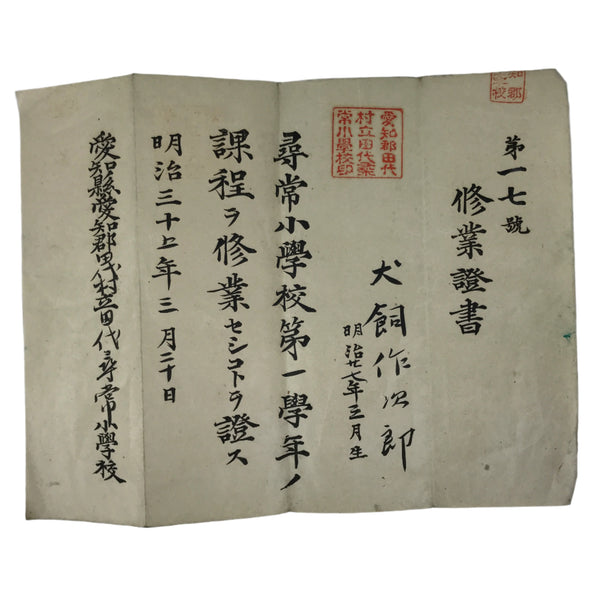 第一七號
修業證書
犬飼作次郎
明治廿七年三月生
愛知郡田代
村立田代尋
常小學校印
尋常小學校第一學年ノ
課程ヲ修業セシコトヲ證ス
明治三十七年三月二十日
愛知縣愛知郡田代村立田代尋常小學校